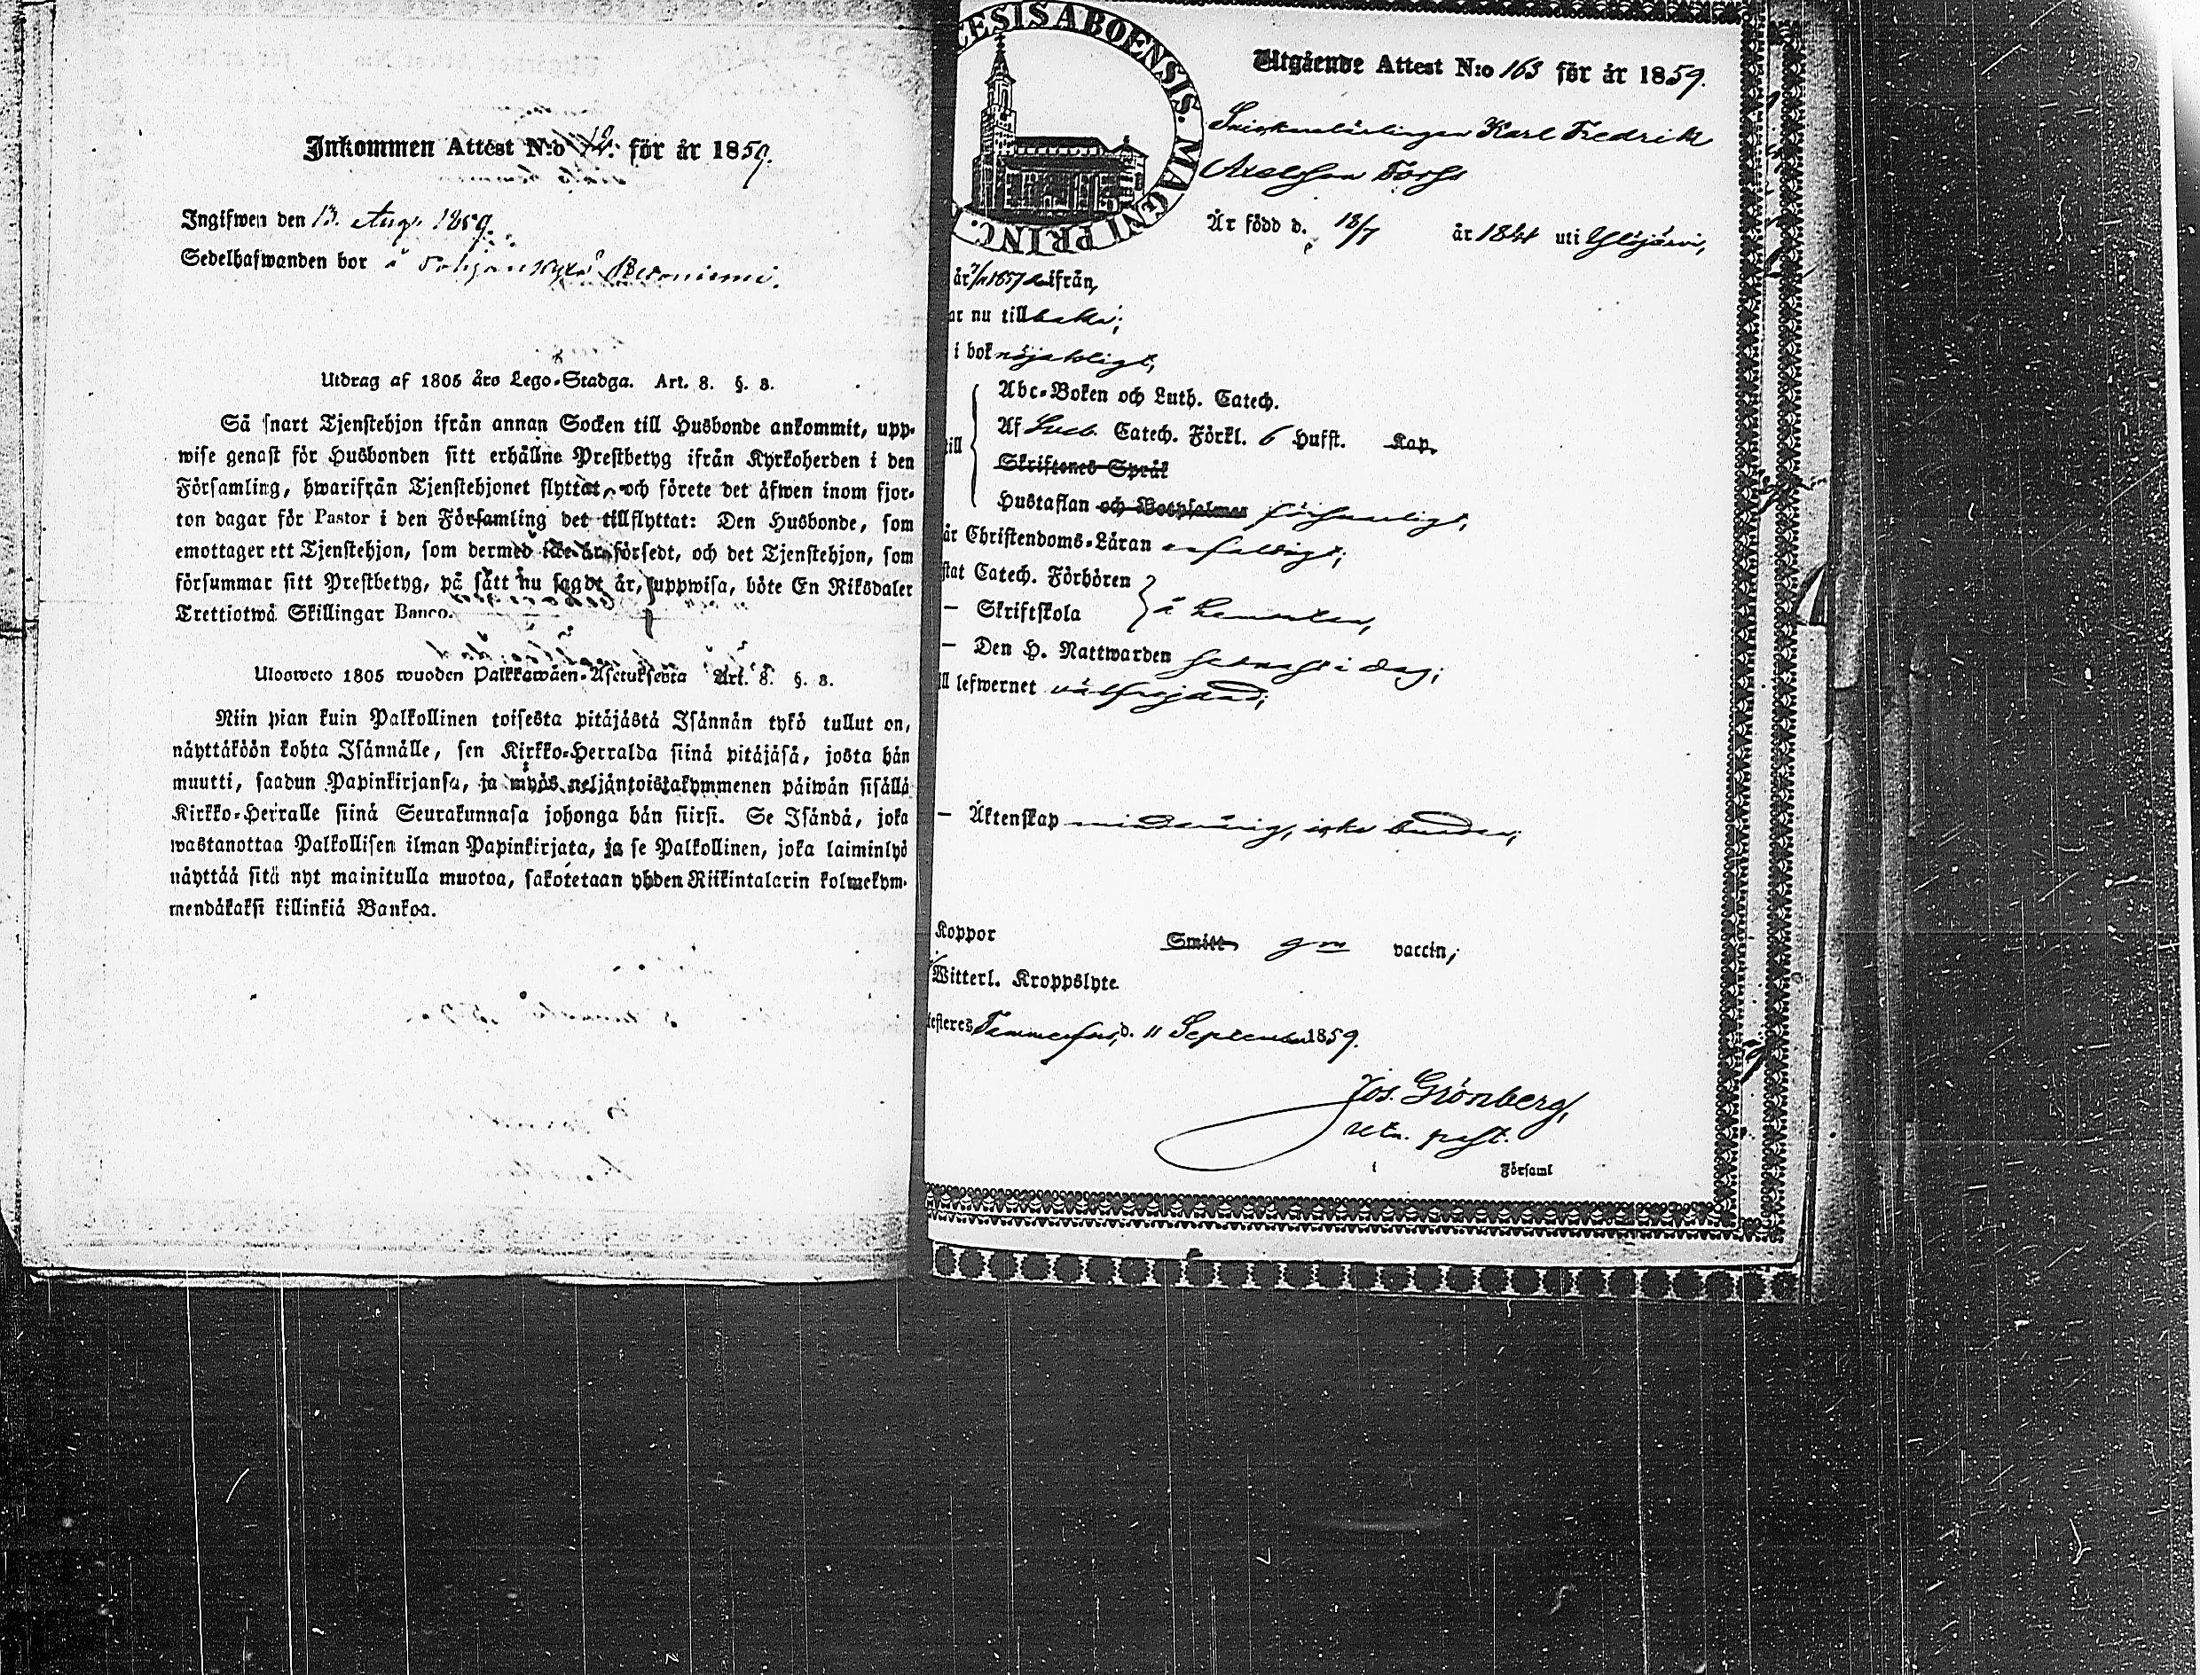 Inkommen Attest N:o 12. för år 1859.
Ingifwen den 13. Aug. 1859.
Sedelhafwanden bor å Pohjankylä
Utdrag af 1805 års Lego-Stadga. Art. 8. §. 8.
Så snart Tjenstehjon ifrån annan Socken till Husbonde ankommit, upp-
wise genast för Husbonden sitt erhållne Prestbetyg ifrån Kyrkoherden i den
Församling, hwarifrån Tjenstehjonet flyttat, och förete det äfwen inom fjor-
ton dagar för Pastor i den Församling det tillflyttat: Den Husbonde, som
emottager ett Tjenstehjon, som dermed icke är försedt, och det Tjenstehjon, som
försummar sitt Prestbetyg, på sätt nu sagdt är, uppwisa, böte En Riksdaler
Trettiotwå Skillingar Banco.
Ulosweto 1805 wuoden Palkkawäen-Asetuksesta Art. 8. §. 8.
Niin pian kuin Palkollinen toisesta pitäjästä Isännän tykö tullut on,
näyttäköön kohta Isännälle, sen Kirkko-Herralda siinä pitäjäsä, josta hän
muutti, saadun Papinkirjansa, ja myös neljäntoistakymmenen päiwän sisällä
Kirkko-Herralle siinä Seurakunnasa johonga hän siirsi. Se Isändä, joka
wastanottaa Palkollisen ilman Papinkirjata, ja se Palkollinen, joka laiminlyö
näyttää sitä nyt mainitulla muotoa, sakotetaan yhden Riikintalarin kolmekym-
mendäkaksi killinkiä Bankoa.
CESIS ABOENSIS. MAGNI PRINC.
Utgående Attest N:o 163 för år 1859.
Snickarelärlingen Karl Fredrik
Axelsson Forss
Är född d. 18/7 år 1841 uti Ylöjärvi,
år 1857 ifrån,
ar nu tillbaka;
i bok nöjaktligt,
Abc-Boken och Luth. Catech.
till Af Sveb. Catech. Förkl. 6 Hufst. Kap.
Skriftenes Språk
Hustaflan och Botpsalmer försvarligt,
är Christendoms-Läran enfaldigt;
stat Catech. Förhören
— Skriftskola
— Den H. Nattwarden senast i dag;
ll lefwernet välfrejdad;
— Äktenskap minderårig, icke bunden;
Koppor Smitt gm vaccin;
Witterl. Kroppslyte
testeres Tammerfors, d. 11 September 1859.
Jos. Grönberg,
past.
i Församl